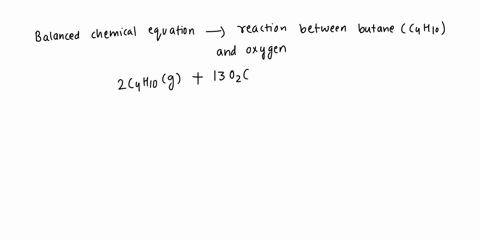 Balanced chemical equation → reaction between butane (C4H10)
and oxygen
2C4H10 (g) + 13 O2 (